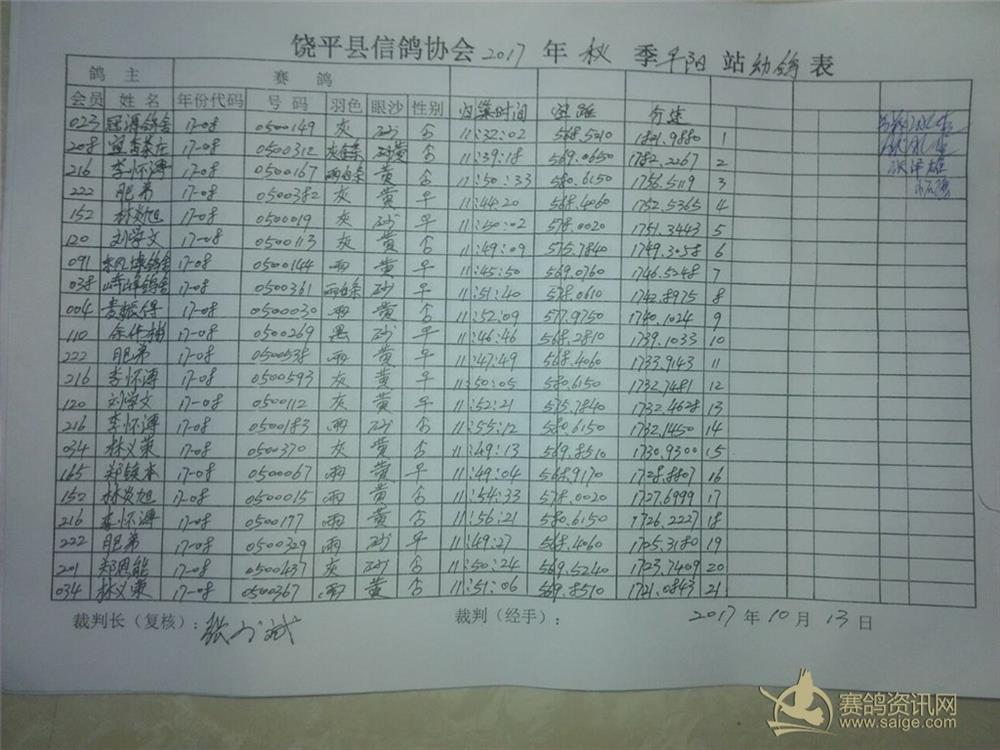 饶平县信鸽协会2017年秋季平阳站幼鸽表
鸽主 赛鸽
会员 姓名 年份代码 号码 羽色 眼沙 性别 归巢时间 空距 分速
023 鸽舍 17-08 0500149 灰 砂 否 11:32:02 568.5210 1821.9880 1
208 17-08 0500312 灰白条 砂黄 否 11:39:18 569.0650 1782.2267 2
216 李怀溥 17-08 0500167 雨白条 黄 否 11:50:33 580.6150 1756.5119 3
222 肥弟 17-08 0500382 灰 黄 平 11:44:20 568.4060 1752.5365 4
152 林炎旭 17-08 0500019 灰 砂 平 11:50:02 578.0020 1751.3443 5
120 刘学文 17-08 0500113 灰 黄 否 11:49:09 575.7840 1749.3058 6
091 鸽舍 17-08 0500144 雨 黄 平 11:45:50 569.0760 1746.5048 7
038 鸽舍 17-08 0500361 雨白条 砂 平 11:51:40 578.0610 1742.8975 8
004 17-08 0500030 雨 黄 否 11:52:09 577.9750 1740.1024 9
110 17-08 0500269 黑 砂 平 11:46:46 568.2810 1739.1033 10
222 肥弟 17-08 0500538 雨 黄 平 11:47:49 568.4060 1733.9143 11
216 李怀溥 17-08 0500593 灰 黄 平 11:50:05 580.6150 1732.7481 12
120 刘学文 17-08 0500112 灰 黄 平 11:52:21 575.7840 1732.4628 13
216 李怀溥 17-08 0500183 雨 砂 否 11:55:12 580.6150 1732.1450 14
034 林义荣 17-08 0500370 灰 黄 否 11:49:13 569.8510 1730.9300 15
165 17-08 0500067 雨 黄 平 11:49:04 568.9170 1728.8807 16
152 林炎旭 17-08 0500015 雨 黄 否 11:54:33 578.0020 1727.6999 17
216 李怀溥 17-08 0500177 雨 黄 否 11:56:21 580.6150 1726.2227 18
222 肥弟 17-08 0500329 雨 砂 平 11:49:27 568.4060 1725.3180 19
201 郑恩能 17-08 0500437 灰 砂 否 11:50:24 569.5240 1723.7409 20
034 林义荣 17-08 0500367 雨 黄 否 11:51:06 569.8510 1721.0843 21
裁判长（复核）： 裁判（经手）： 2017年10月13日
赛鸽资讯网
www.saige.com